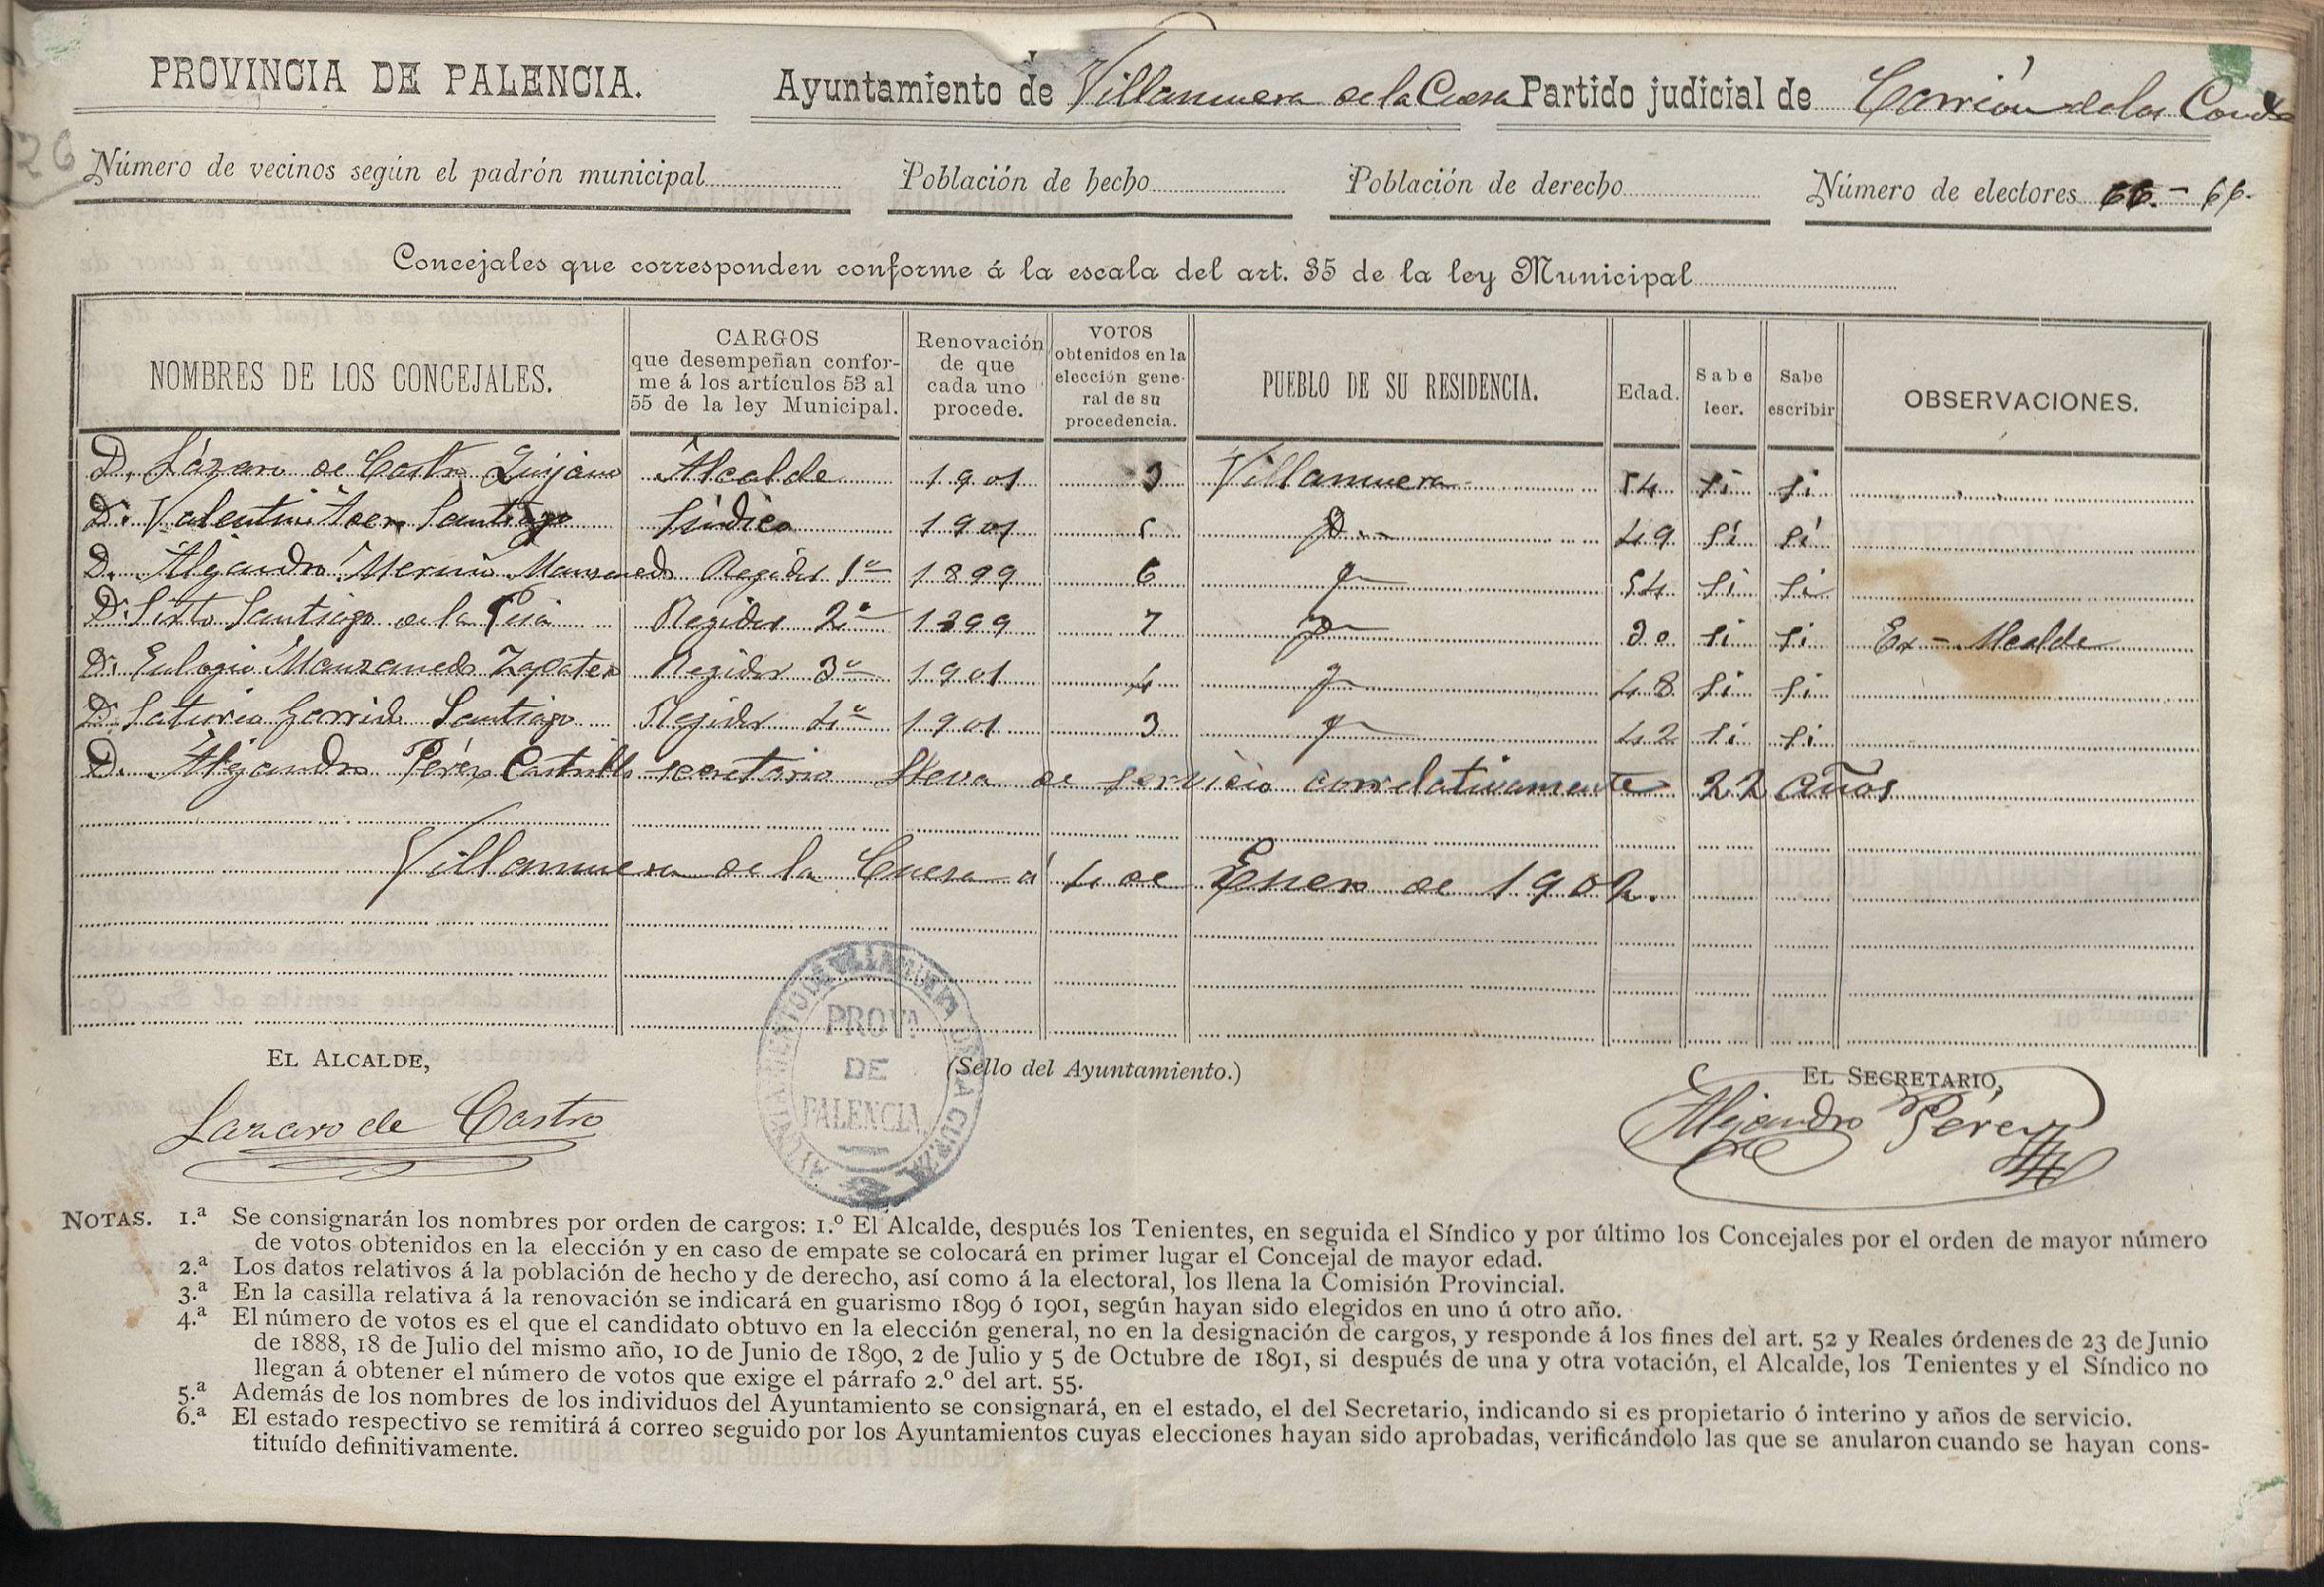 PROVINCIA DE PALENCIA. Ayuntamiento de Villanueva de la Cueza Partido judicial de Carrión de los Condes
26
Número de vecinos según el padrón municipal Población de hecho Población de derecho Número de electores 66.- 66.
Concejales que corresponden conforme á la escala del art. 35 de la ley Municipal
NOMBRES DE LOS CONCEJALES. CARGOS que desempeñan conforme á los artículos 53 al 55 de la ley Municipal. Renovación de que cada uno procede. VOTOS obtenidos en la elección general de su procedencia. PUEBLO DE SU RESIDENCIA. Edad. Sabe leer. Sabe escribir OBSERVACIONES.
D. Lázaro de Castro Quijano Alcalde 1901 3 Villanueva 54 si si
D. Valentin Acero Santiago Sindico 1901 5 D. 49 si si
D. Alejandro Merino Manzanedo Regidor 1º 1899 6 54 si si
D. Sixto Santiago de la Peña Regidor 2º 1899 7 30 si si Ex-Alcalde
D. Eulogio Manzanedo Zapatero Regidor 3º 1901 4 48 si si
D. Saturio Garrido Santiago Regidor 4º 1901 3 42 si si
D. Alejandro Pérez Castrillo secretario lleva de servicio correlativamente 22 años
Villanueva de la Cueza á 4 de Enero de 1902.
AYUNTAMIENTO DE VILLANUEVA DE LA CUEZA
PROVA
DE
PALENCIA
EL ALCALDE, (Sello del Ayuntamiento.) EL SECRETARIO,
Lazaro de Castro Alejandro Pérez
NOTAS. 1.ª Se consignarán los nombres por orden de cargos: 1.º El Alcalde, después los Tenientes, en seguida el Síndico y por último los Concejales por el orden de mayor número
de votos obtenidos en la elección y en caso de empate se colocará en primer lugar el Concejal de mayor edad.
2.ª Los datos relativos á la población de hecho y de derecho, así como á la electoral, los llena la Comisión Provincial.
3.ª En la casilla relativa á la renovación se indicará en guarismo 1899 ó 1901, según hayan sido elegidos en uno ú otro año.
4.ª El número de votos es el que el candidato obtuvo en la elección general, no en la designación de cargos, y responde á los fines del art. 52 y Reales órdenes de 23 de Junio
de 1888, 18 de Julio del mismo año, 10 de Junio de 1890, 2 de Julio y 5 de Octubre de 1891, si después de una y otra votación, el Alcalde, los Tenientes y el Síndico no
llegan á obtener el número de votos que exige el párrafo 2.º del art. 55.
5.ª Además de los nombres de los individuos del Ayuntamiento se consignará, en el estado, el del Secretario, indicando si es propietario ó interino y años de servicio.
6.ª El estado respectivo se remitirá á correo seguido por los Ayuntamientos cuyas elecciones hayan sido aprobadas, verificándolo las que se anularon cuando se hayan cons-
tituído definitivamente.